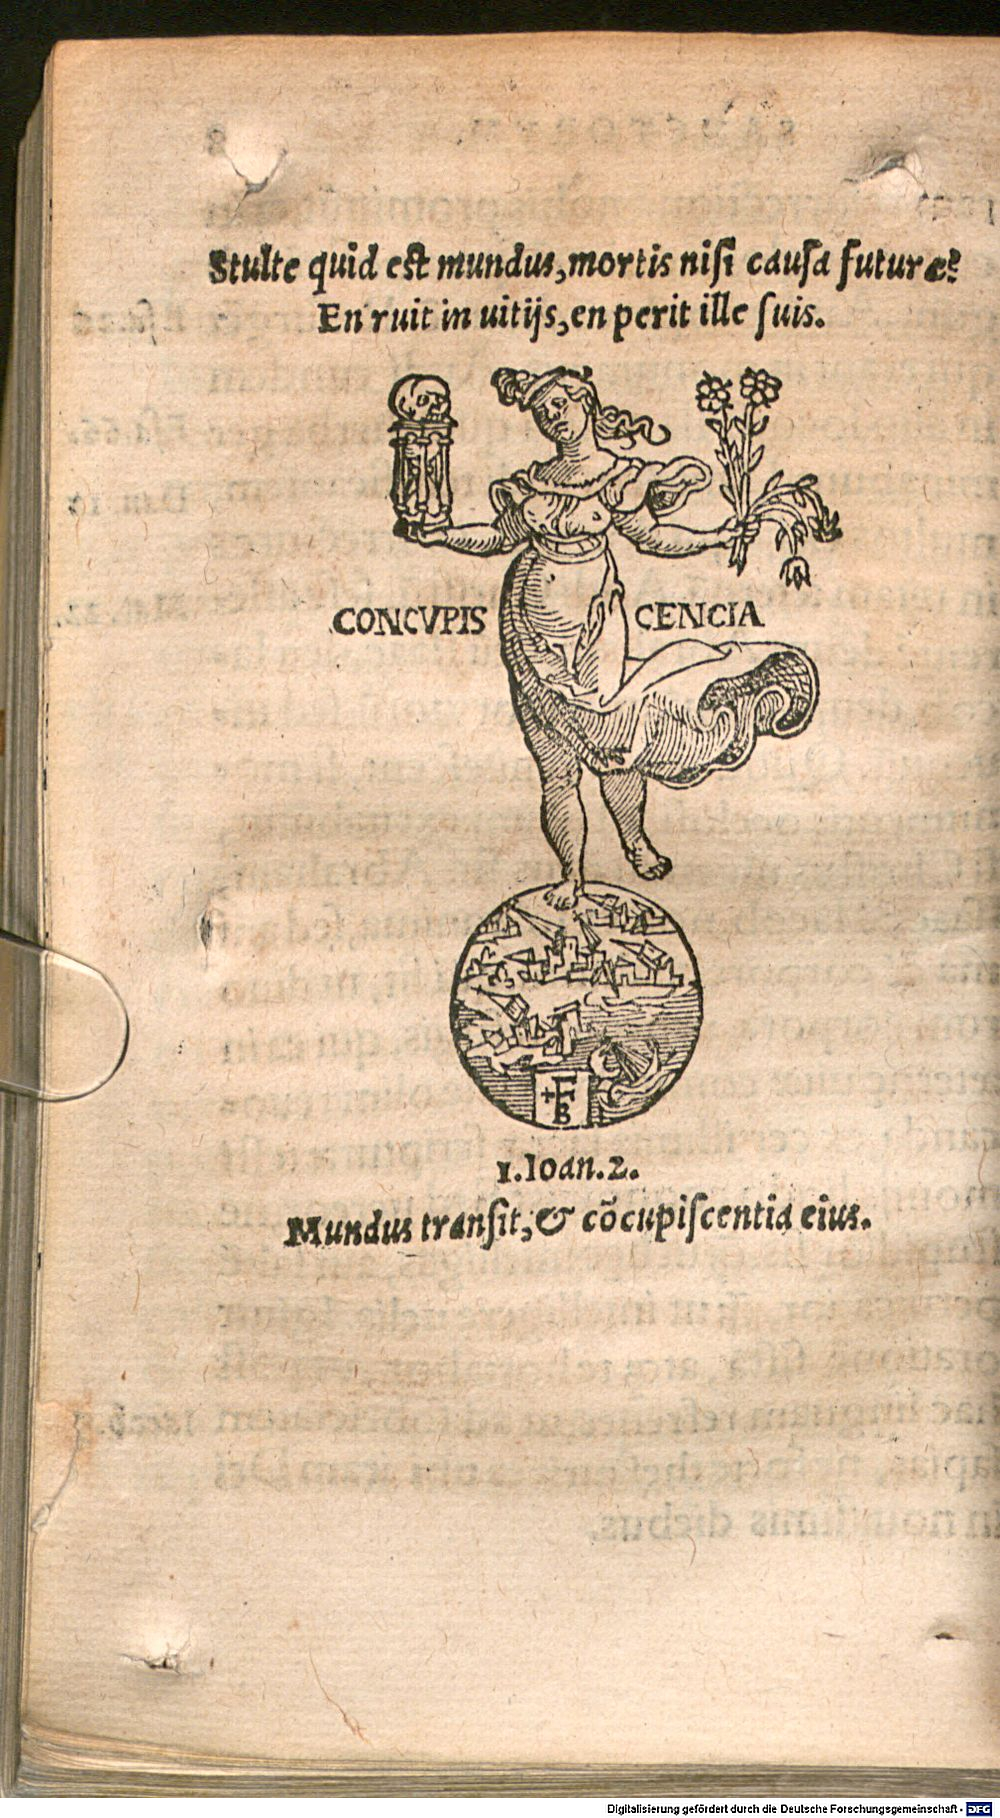 Stulte quid est mundus, mortis nisi causa futuræ?
En ruit in uitijs, en perit ille suis.
CONCVPIS CENCIA
F
B
1. Ioan. 2.
Mundus transit, & cõcupiscentia eius.
Digitalisierung gefördert durch die Deutsche Forschungsgemeinschaft - DFG